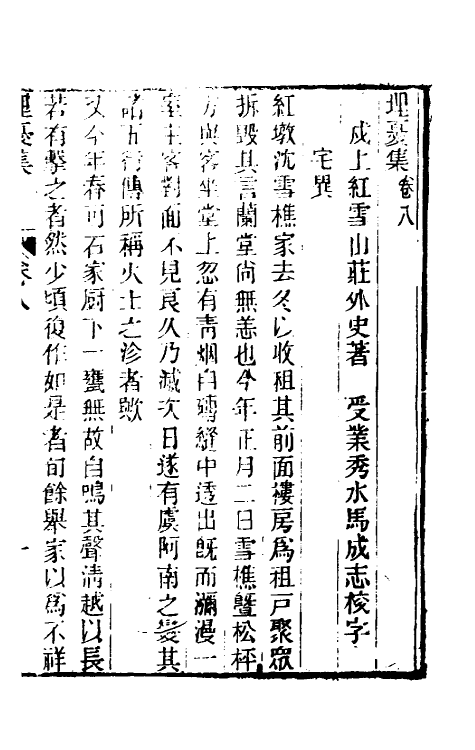 埋憂集卷八
戍上紅雪山莊外史著　受業秀水馬成志校字
宅異
紅墩沈雪樵家去冬以收租其前面樓房爲租戸聚眾
拆毀其言蘭堂尚無恙也今年正月二日雪樵曁松枰
方與客坐堂上忽有靑烟自磚縫中透出旣而瀰漫一
室主客對面不見良久乃滅次日遂有虞阿南之變其
諸五行傳所稱火土之沴者歟
又今年春間石家厨下一甕無故自鳴其聲淸越以長
若有擊之者然少頃復作如是者旬餘舉家以爲不祥
埋憂集　卷八　一